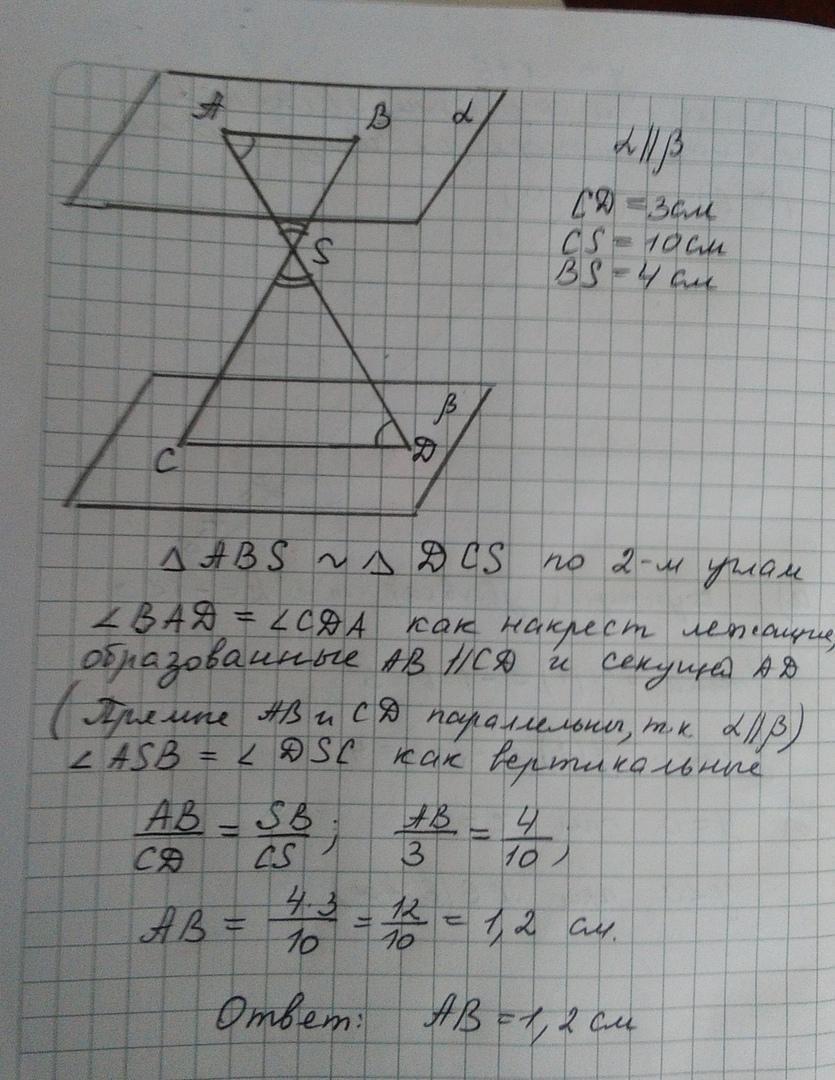 A B α
S
β
C D
α∥β
CD = 3см
CS = 10см
BS = 4 см
Δ ABS ~ Δ DCS по 2-м углам
∠BAD = ∠CDA как накрест лежащие,
образованные AB ∥ CD и секущей AD
(Прямые AB и CD параллельны, т.к. α∥β)
∠ASB = ∠ DSC как вертикальные
AB/CD = SB/CS; AB/3 = 4/10;
AB = 4·3/10 = 12/10 = 1,2 см.
Ответ: AB = 1,2 см